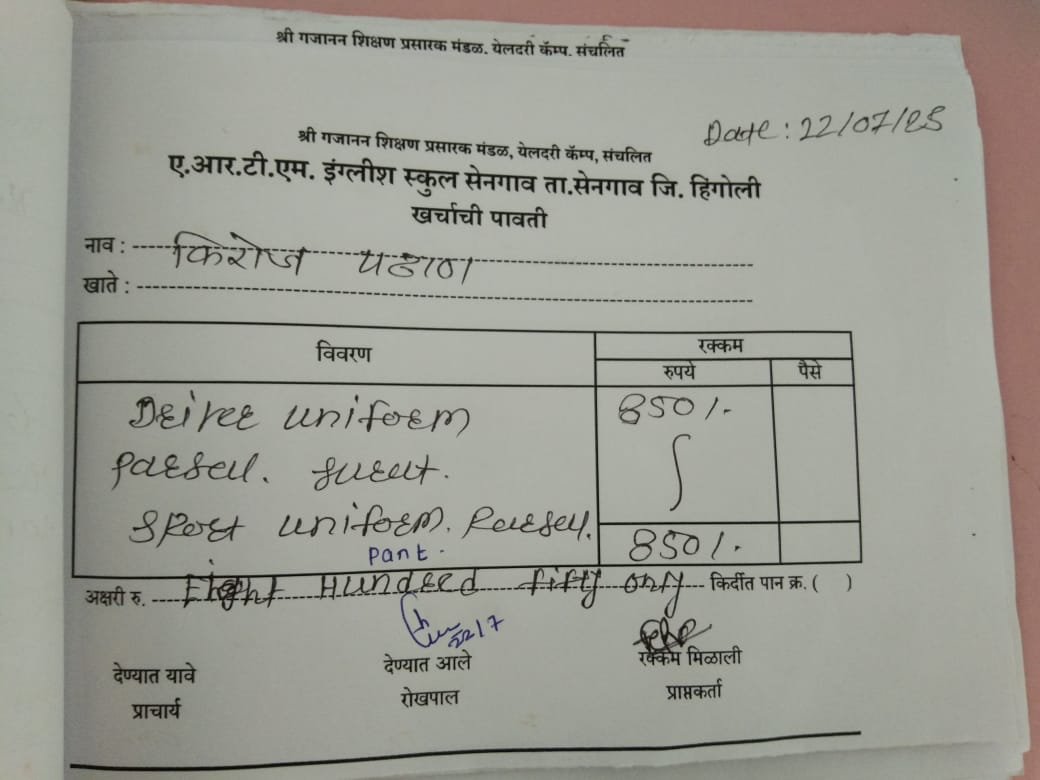 श्री गजानन शिक्षण प्रसारक मंडळ. येलदरी कॅम्प. संचलित
Date : 22/07/25
श्री गजानन शिक्षण प्रसारक मंडळ, येलदरी कॅम्प, संचलित
ए.आर.टी.एम. इंग्लीश स्कुल सेनगाव ता.सेनगाव जि. हिंगोली
खर्चाची पावती
नाव : फिरोज पठाण
खाते :
विवरण रक्कम
रुपये पैसे
uniform 850/-
Parsel.
Sport uniform. Parsel.
Pant. 850/-
अक्षरी रु. Eight Hundred fifty only किर्दीत पान क्र. ( )
22/7
देण्यात यावे देण्यात आले रक्कम मिळाली
प्राचार्य रोखपाल प्राप्तकर्ता